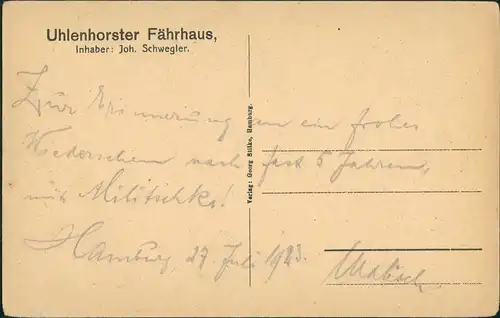 Uhlenhorster Fährhaus,
Inhaber: Joh. Schwegler.
Zur Erinnerung an ein frohes
Wiedersehen nach fast 5 Jahren,
mit Militschke!
Hamburg, 27 Juli 1923.
Verlag: Georg Stilke, Hamburg.